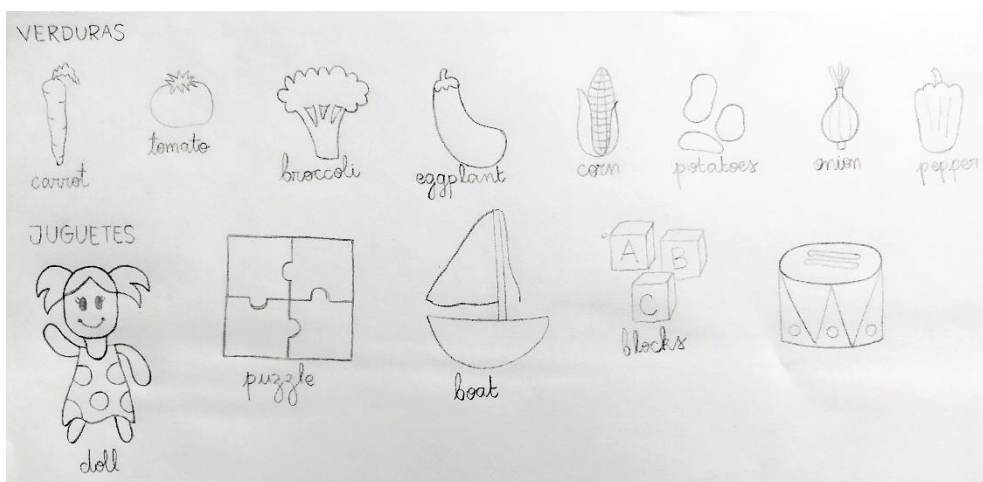 VERDURAS
carrot
tomato
broccoli
eggplant
corn
potatoes
onion
pepper
JUGUETES
doll
puzzle
boat
A
B
C
blocks